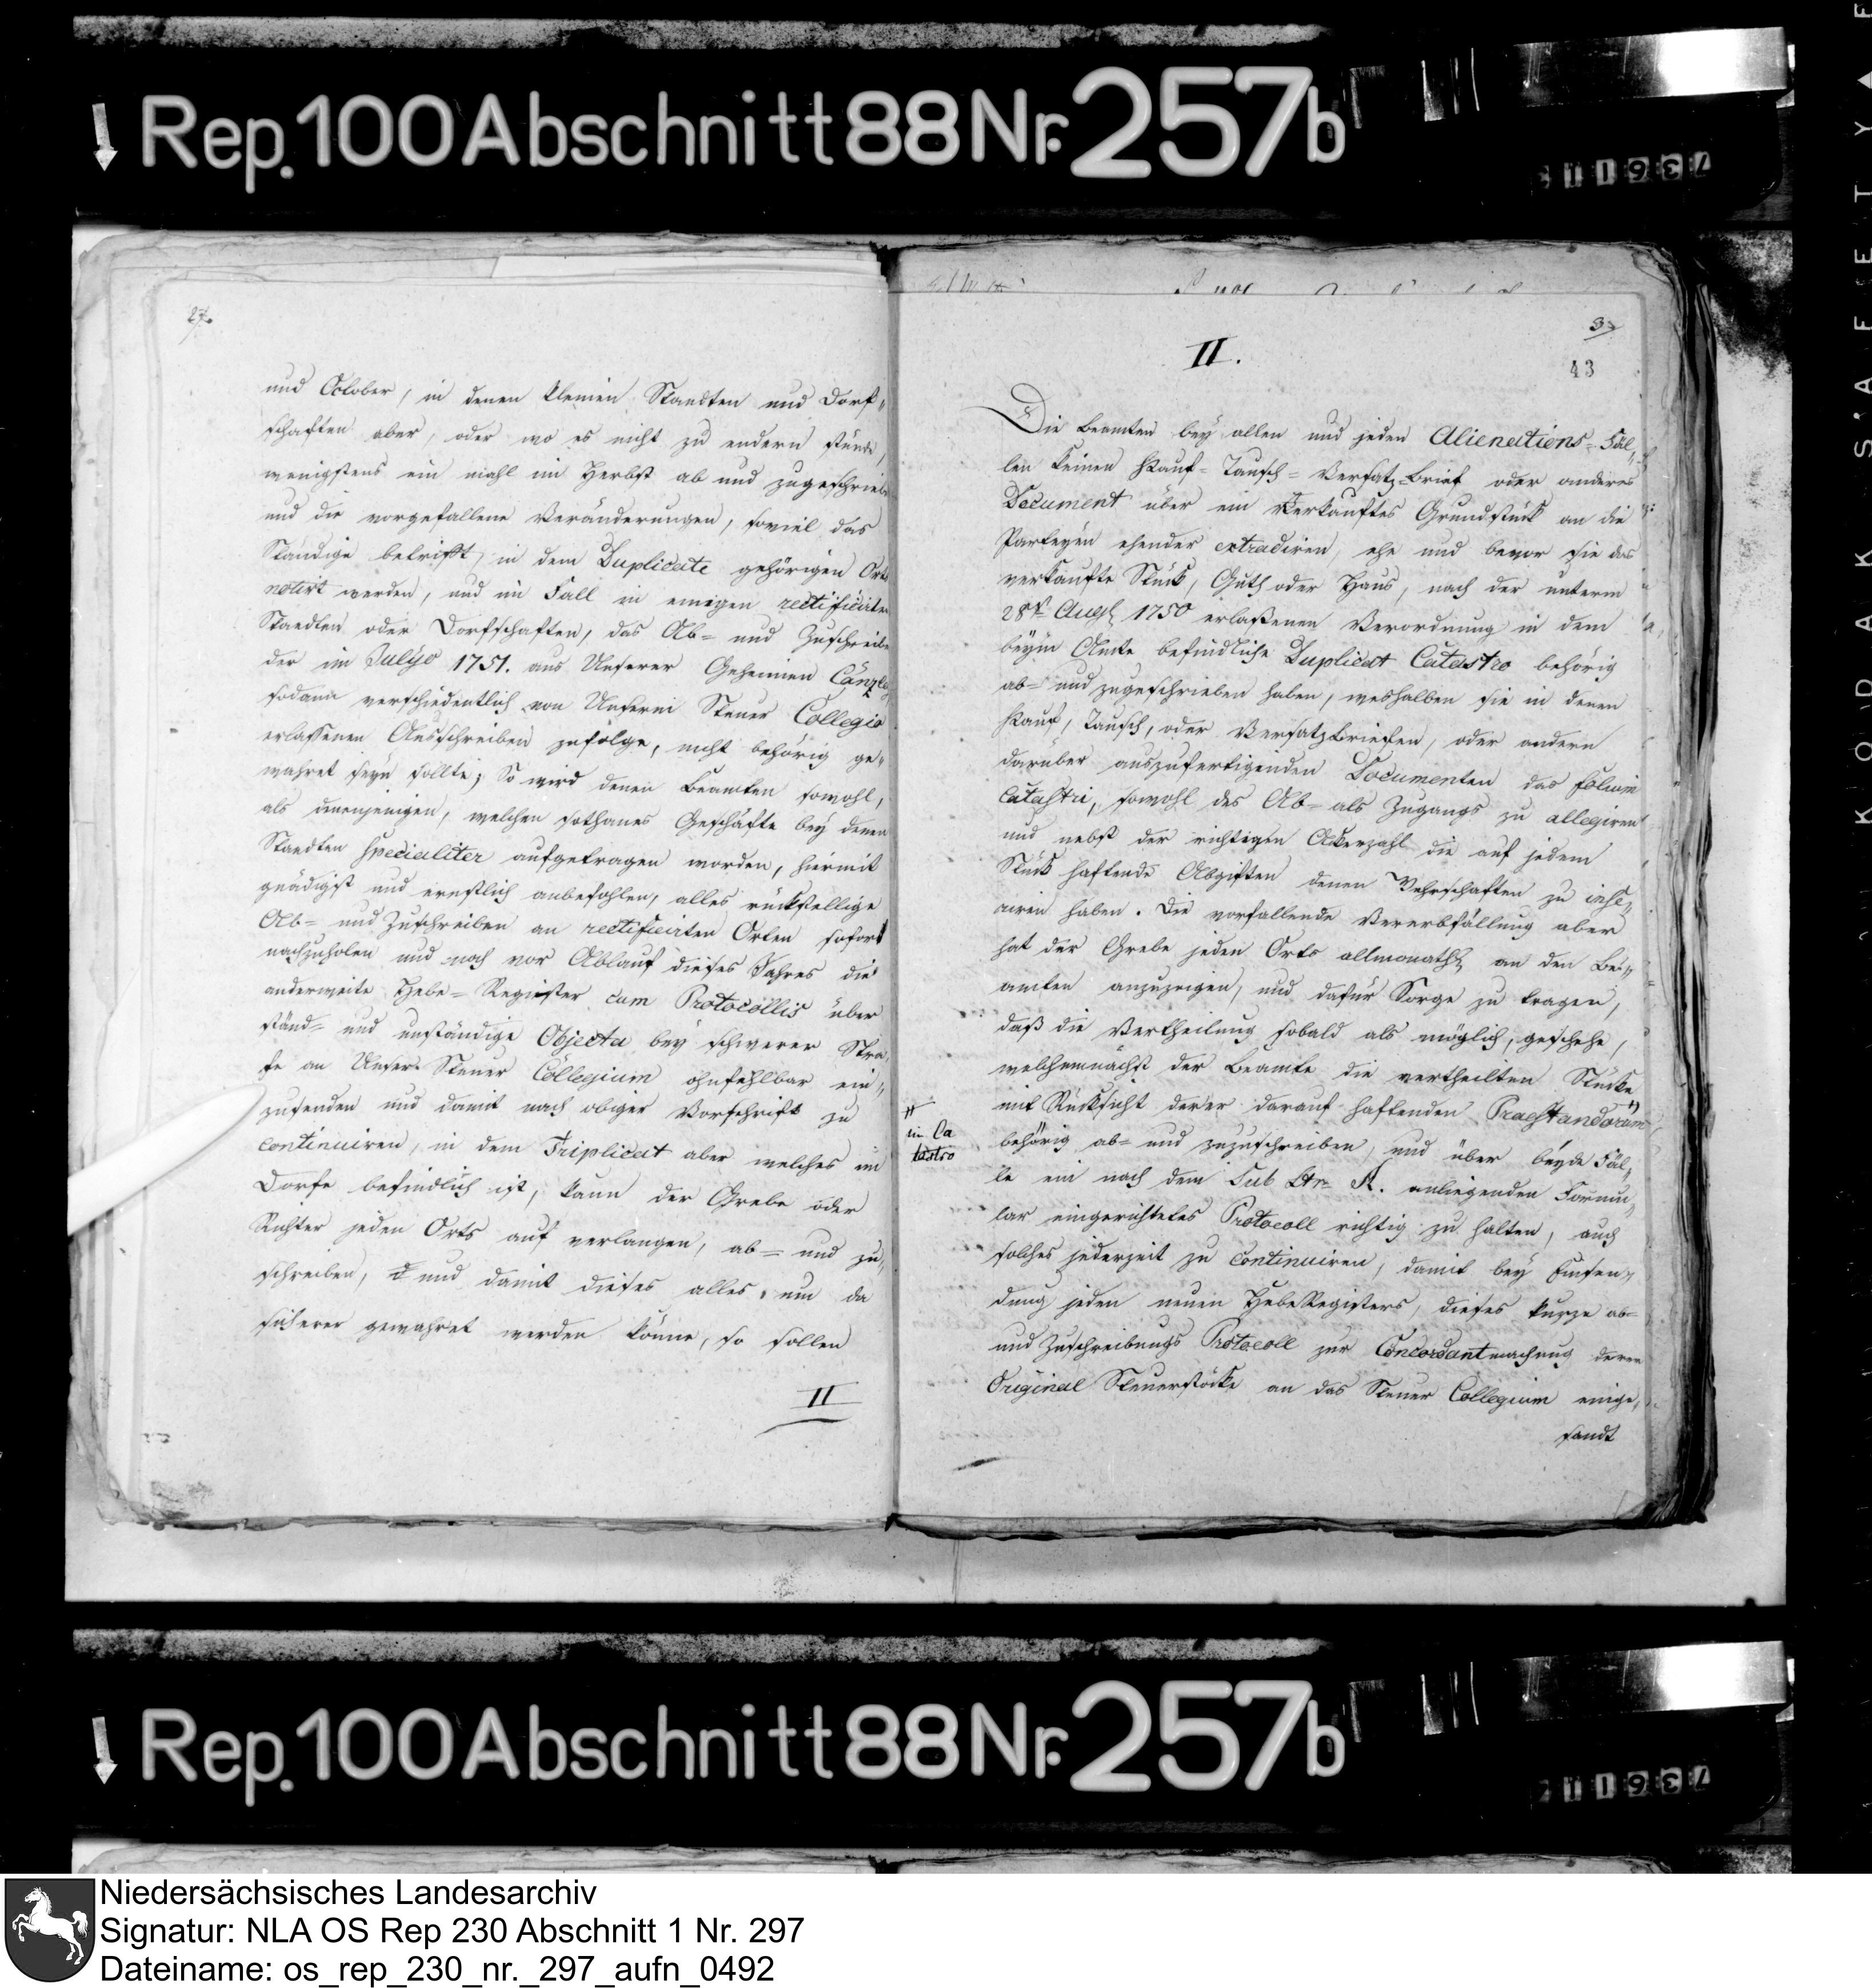 Rep. 100 Abschnitt 88 Nr. 257b
27.
und October, in denen kleinen Staedten und Dorf„
schaften aber, oder wo es nicht zu endern stünde,
wenigstens ein mahl im Herbst ab und zugeschrieb
und die vorgefallene Veränderungen, soviel das
Ständige betrifft, in dem Duplicate gehörigen Orts
notirt werden, und im Fall in einigen rectificirten
Staedten oder Dorfschaften, das Ab= und Zuschreiben
der im Julyo 1751. aus Unserer Geheimen Canzley
sodann verschiedentlich von Unserm Steuer Collegio
erlassenen Ausschreiben zufolge, nicht behörig ge„
wahret seyn sollte; So wird denen Beamten sowohl,
als denenjenigen, welchen sothanes Geschäfte bey denen
Staedten specialiter aufgetragen worden, hiermit
gnädigst und ernstlich anbefohlen, alles rückstellige
Ab= und Zuschreiben an rectificirten Orten sofort
nachzuholen und noch vor Ablauf dieses Jahres die
anderweite Hebe=Register cum Protocollis über
ständ= und unständige Objecta bey schwerer Stra„
fe an Unser Steuer Collegium ohnfehlbar ein„
zusenden und damit nach obiger Vorschrift zu
continuiren, in dem Triplicat aber welches im
Dorfe befindlich ist, kann der Grebe oder
Richter jeden Orts auf verlangen, ab= und zu„
schreiben, und damit dieses alles um da
sicherer gewahret werden könne, so sollen
II
3
43
II.
Die Beamten bey allen und jeden Alienations=Fäl„
len keinen Kauf=Tausch=Versatz=Brief oder anderes
Document über ein Verkauftes Grundstück an die
Partheyen ehender extradiren, ehe und bevor sie das
verkaufte Stück, Guth oder Haus, nach der unterm
28t Augst 1750 erlaßenen Verordnung in dem
beym Amte befindliche Duplicat Catastro behörig
ab= und zugeschrieben haben, weshalben sie in denen
Kauf, Tausch, oder Versatzbriefen, oder andern
darüber auszufertigenden Documenten das folium
Catastri, sowohl des Ab= als Zugangs zu allegiren
und nebst der richtigen Ackerzahl die auf jedem
Stück haftende Abgiften denen Wehrschaften zu inse„
riren haben. Die vorfallende Vererbfällung aber
hat der Grebe jeden Orts allmonathl. an den Be„
amten anzuzeigen, und dafür Sorge zu tragen,
daß die Vertheilung sobald als möglich, geschehe,
welchemnächst der Beamte die vertheilten Stücke
mit Rücksicht derer darauf haftenden Praestandorum #)
#
in Ca
tastro
behörig ab= und zuzuschreiben, und über beyde Fäl„
le ein nach dem Sub Ltr. A. anliegenden Formu„
lar eingerichtetes Protocoll richtig zu halten, auch
solches jederzeit zu continuiren, damit bey Einsen„
dung jeden neuen HebeRegisters, dieses kurze ab=
und Zuschreibungs Protocoll zur Concordantmachung deren
Original Steuerstöcke an das Steuer Collegium einge„
sandt
Rep. 100 Abschnitt 88 Nr. 257b
Niedersächsisches Landesarchiv
Signatur: NLA OS Rep 230 Abschnitt 1 Nr. 297
Dateiname: os_rep_230_nr._297_aufn_0492